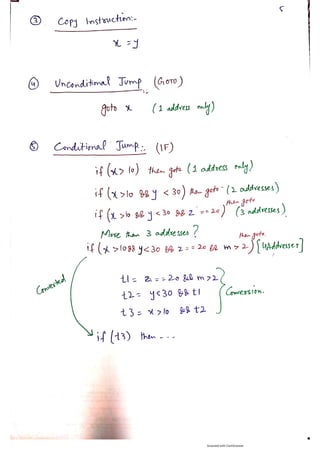 5
③ Copy Instruction:-
x = y
④ Unconditional Jump (GOTO)
goto x (1 address only)
⑤ Conditional Jump:- (IF)
if (x > 10) then goto (1 address only)
if (x >10 && y < 30) then goto - (2 addresses)
if (x >10 && y < 30 && z == 20) then goto (3 addresses)
More than 3 addresses?
if (x >10 && y<30 && z == 20 && m > 2) then goto [4 Addresses]
Converted
t1 = z == 20 && m>2
t2 = y<30 && t1
t3 = x >10 && t2
Conversion.
if (t3) then - - -
Scanned with CamScanner